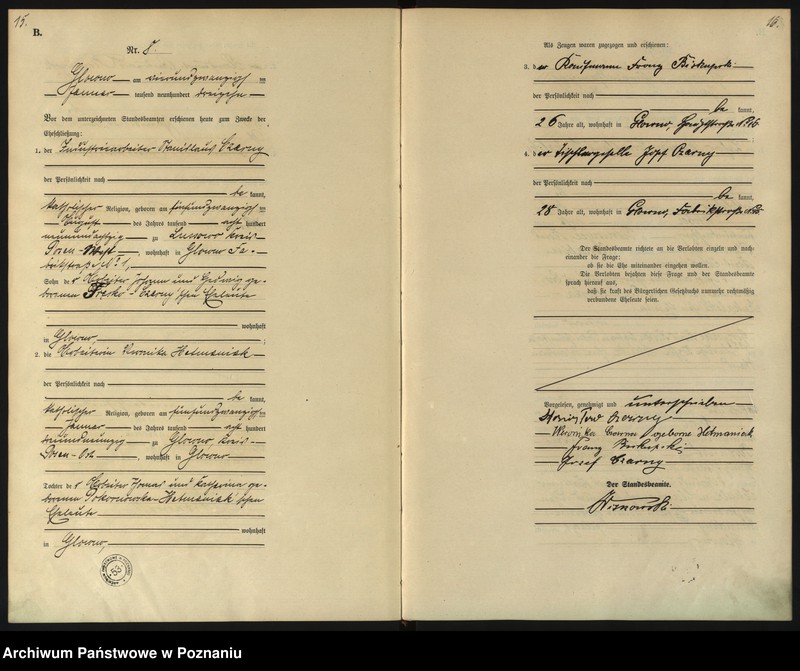 15.
B.
Nr. 8.
Glowno am vierundzwanzigsten
Januar tausend neunhundert dreizehn
Vor dem unterzeichneten Standesbeamten erschienen heute zum Zwecke der
Eheschließung:
1. der Industriearbeiter Stanislaus Czarny
der Persönlichkeit nach
be kannt,
katholischer Religion, geboren am fünfundzwanzigsten
August des Jahres tausend acht hundert
neunundachtzig zu Kreis
Posen-West, wohnhaft in Glowno Fa-
brikstraße Nr. 1,
Sohn des Arbeiters Johann und Hedwig ge-
borenen Czarny'schen Eheleute
wohnhaft
in Glowno.
2. die Arbeiterin Veronika Hetmaniak
der Persönlichkeit nach
be kannt,
katholischer Religion, geboren am fünfundzwanzigsten
Januar des Jahres tausend acht hundert
dreiundneunzig zu Glowno Kreis
Posen-Ost, wohnhaft in Glowno
Tochter des Arbeiters Thomas und Katharina ge-
borenen Hetmaniak'schen
Eheleute
wohnhaft
in Glowno,
53
16.
Als Zeugen waren zugezogen und erschienen:
3. der Kaufmann Franz
der Persönlichkeit nach
be kannt,
26 Jahre alt, wohnhaft in Glowno,
4. der Tischlergeselle Josef Czarny
der Persönlichkeit nach
be kannt,
28 Jahre alt, wohnhaft in Glowno, Fabrikstraße
Der Standesbeamte richtete an die Verlobten einzeln und nach-
einander die Frage:
ob sie die Ehe miteinander eingehen wollen.
Die Verlobten bejahten diese Frage und der Standesbeamte
sprach hierauf aus,
daß sie kraft des Bürgerlichen Gesetzbuchs nunmehr rechtmäßig
verbundene Eheleute seien.
Vorgelesen, genehmigt und unterschrieben
Czarny
Czarna geborne Hetmaniak
Franz
Josef Czarny
Der Standesbeamte.
Wisnowski
Archiwum Państwowe w Poznaniu